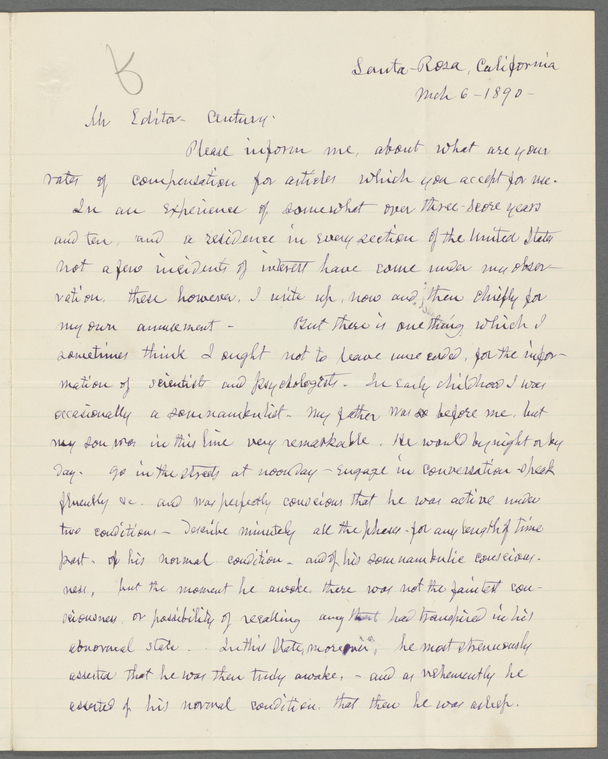 Santa-Rosa, California
Mch 6-1890-
Mr Editor- Century.
Please inform me, about what are your
rates of compensation for articles which you accept for use.
In an experience of somewhat over three-score years
and ten, and a residence in every section of the United States
not a few incidents of interest have come under my obser-
vation, these however, I write up, now and then chiefly for
my own amusement - But there is one thing which I
sometimes think I ought not to leave unrecorded, for the infor-
mation of scientist and psychologists. In early childhood I was
occasionally a somnambulist. My father was so before me, but
my son was in this line very remarkable. He would by night or by
day. go in the streets at noonday - Engage in conversation speak
fluently &c. and was perfectly conscious that he was active under
two conditions - Describe minutely all the phases - for any length of time
past - of his normal condition - and of his somnambulic conscious-
ness, but the moment he awoke there was not the faintest con-
sciousness or possibility of recalling any that had transpired in his
abnormal state. In this State, moreover, he most strenuously
asserted that he was then truly awake, - and as vehemently he
asserted of his normal condition, that then he was asleep.